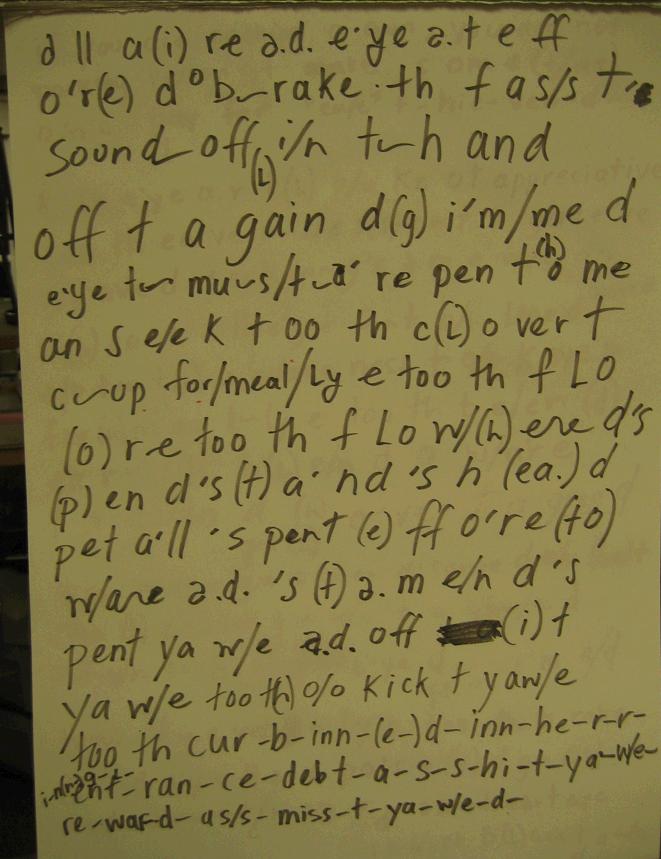 d ll a(i) re a.d. e'ye a.t e ff
o'r(e) d o b rake th f as/s t
sound off(L) i/n t h and
off t a gain d(g) i'm/me d
e'ye t mu s/t a' re pen t(h) o me
an s e/e k t oo th c(L) o ver t
c up for/meal/Ly e too th f L o
(o) r e too th f L o w/(h) ere d's
(p) en d's (t) a' nd 's h (ea.) d
pet a'll 's pent (e) ff o're (to)
w/are a.d. 's (t) a.m e/n d's
pent ya w/e a.d. off (i) t
ya w/e too t(h) o/o kick t yaw/e
too th cur-b-inn-(e-)d-inn-he-r-r-
ent-ran-ce-debt-a-s-s-hi-t-ya-w/e-
re-ward-as/s-miss-t-ya-w/e-d-